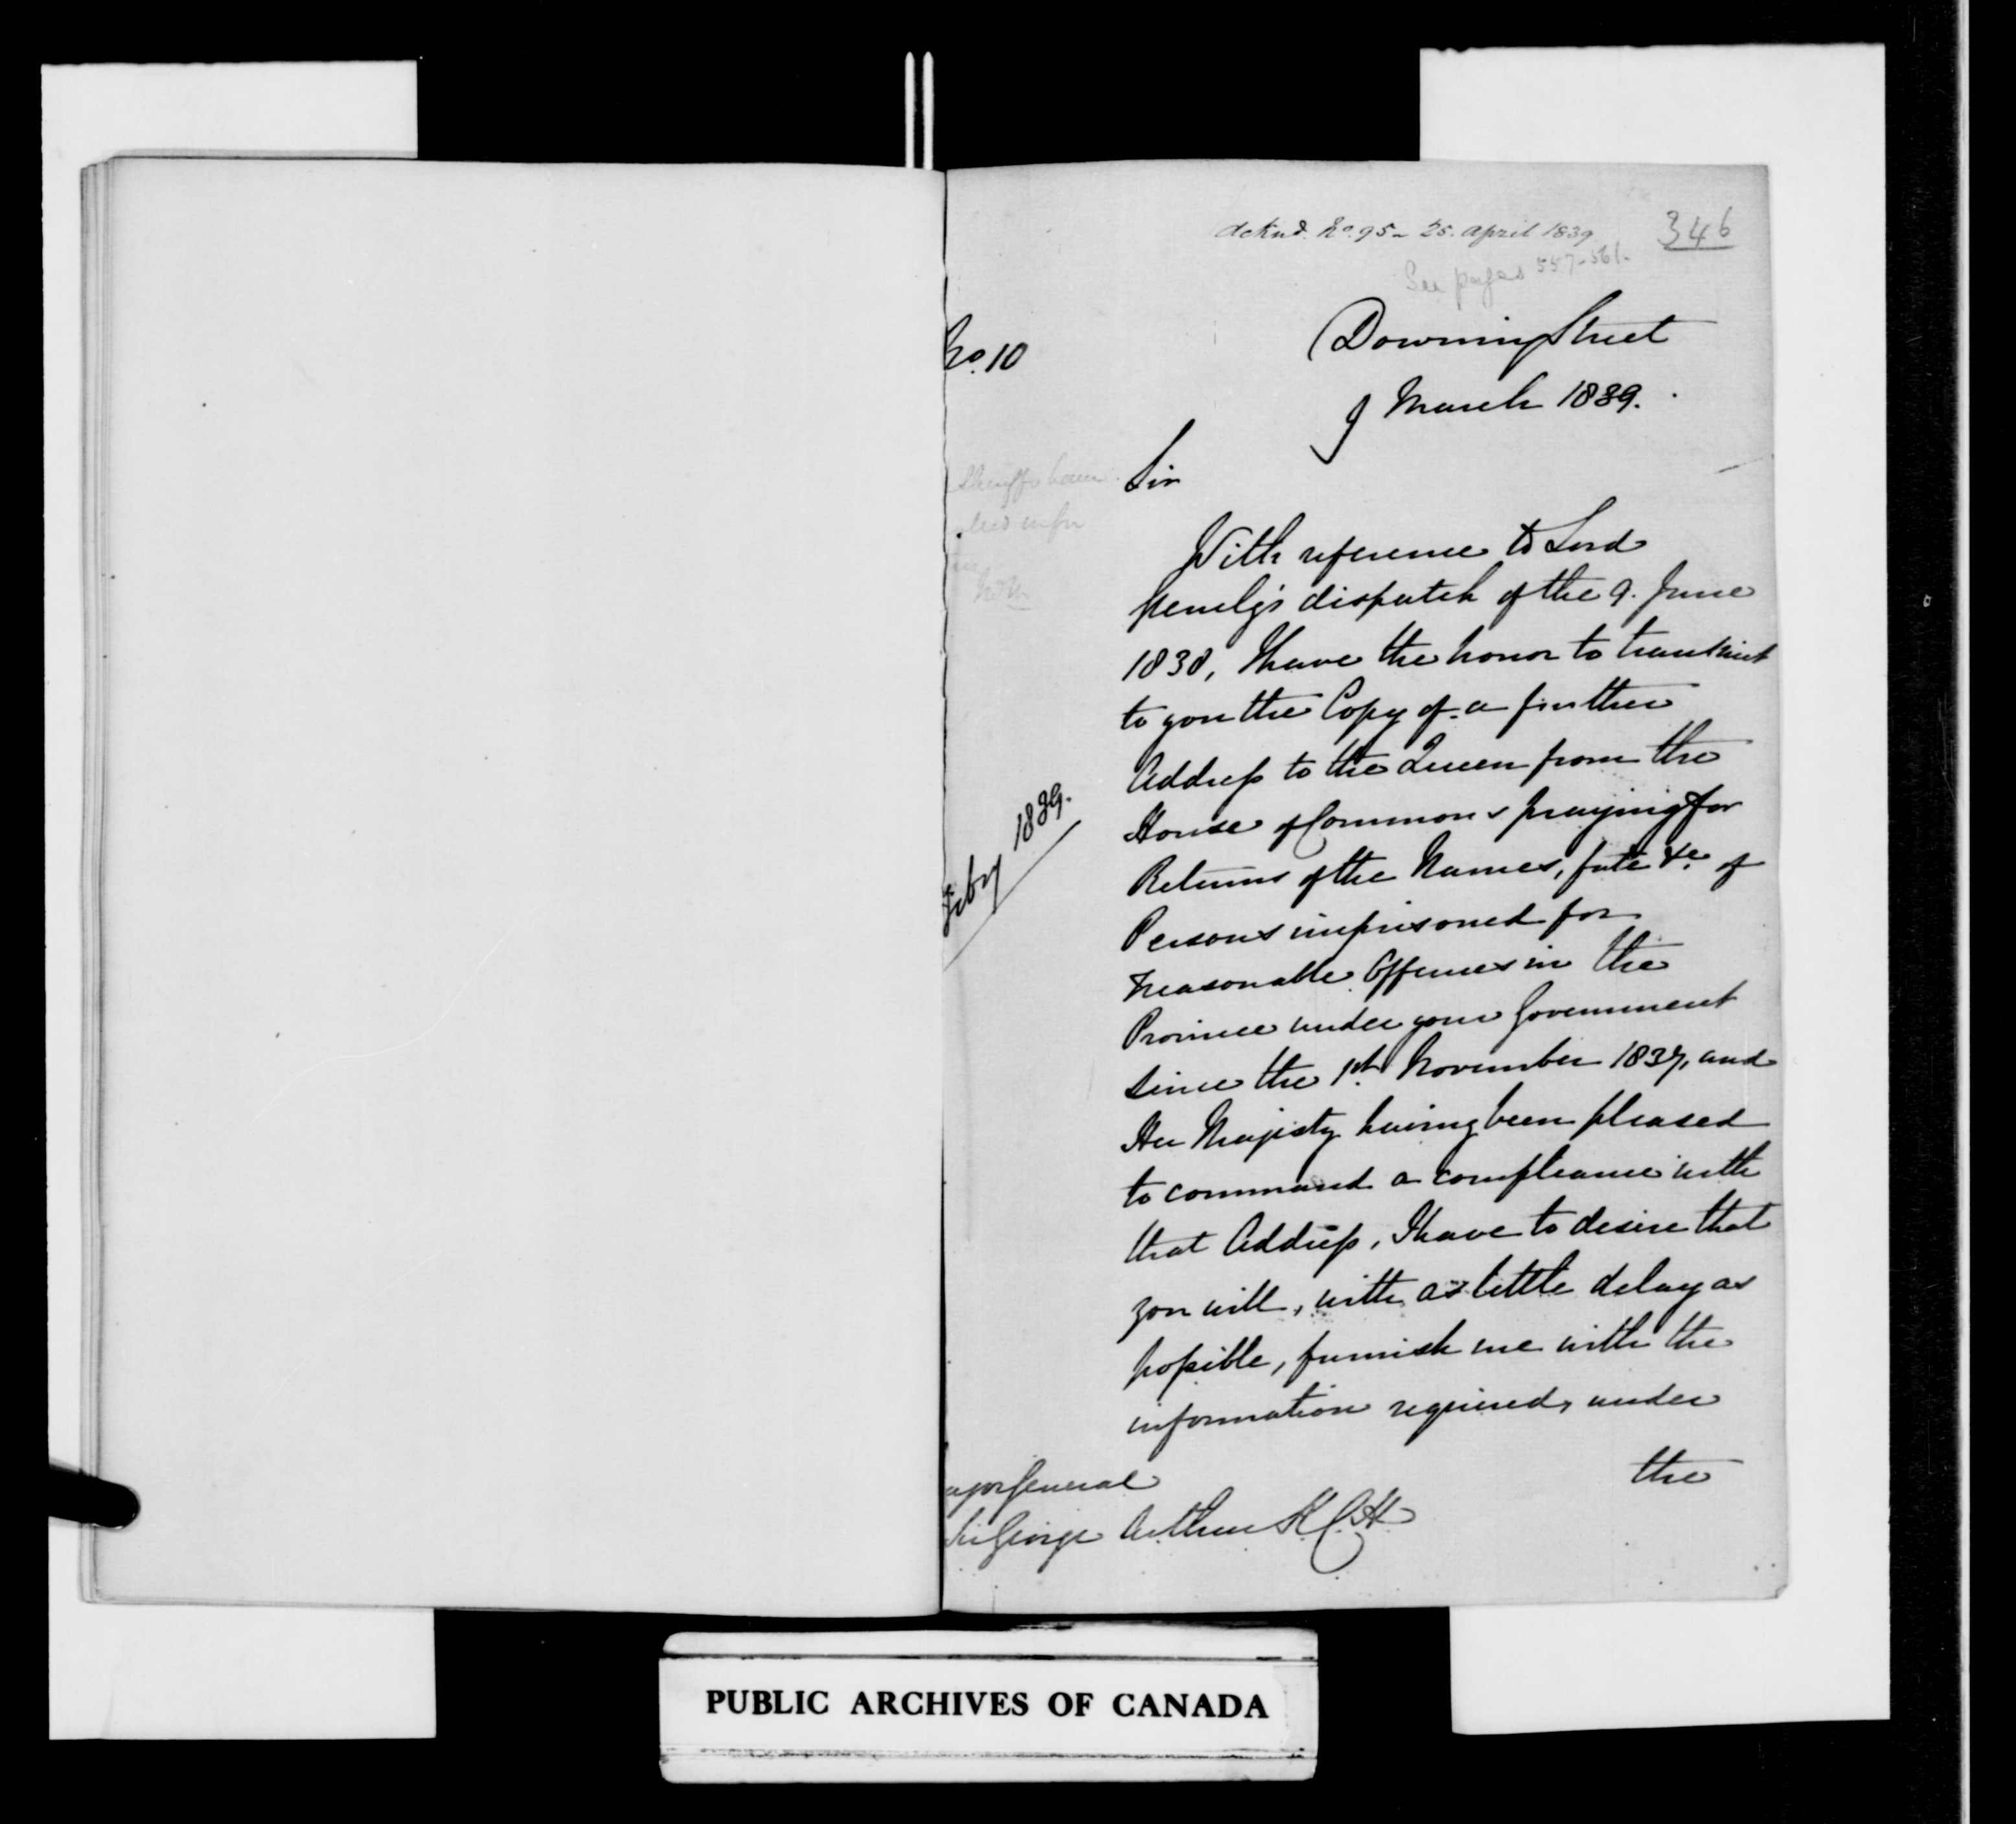 Acknd. No. 95 - 25. April 1839
346
See pages 557-561-
No. 10
Downing Street
9 March 1839.
Sir
With reference to Lord
Glenelg's dispatch of the 9. June
1838, I have the honor to transmit
to you the Copy of a further
Address to the Queen from the
House of Commons praying for
Returns of the Names, fate &c. of
Persons imprisoned for
Treasonable Offences in the
Province under your Government
since the 1st November 1837, and
Her Majesty having been pleased
to command a compliance with
that Address, I have to desire that
you will, with as little delay as
possible, furnish me with the
information required, under
the
Feby 1839.
ajor General
Sir George Arthur K.C.H.
PUBLIC ARCHIVES OF CANADA